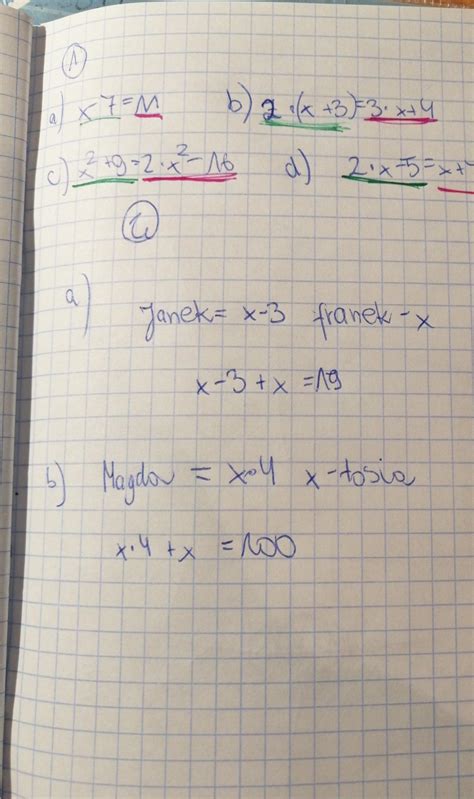 1
a) x 7 = 11 b) 2·(x+3)=3·x+4
c) x²+9=2·x²-16 d) 2·x-5=x+
2
a)
Janek = x-3 franek - x
x-3+x=19
b) Magda = x·4 x-tosia
x·4+x=100